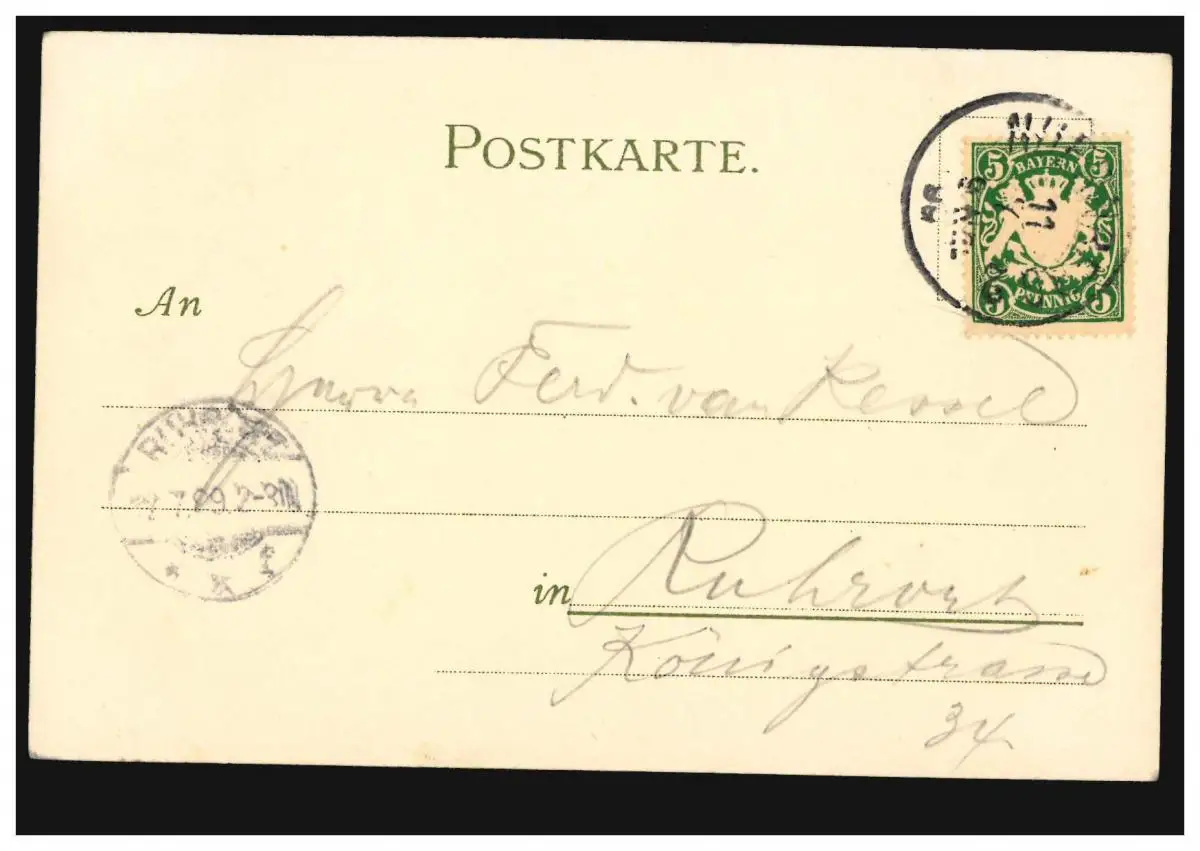 POSTKARTE.
5 BAYERN 5
5 PFENNIG 5
11
An
Herrn Ferd. van Kessel
7.99.2-3N
in Ruhrort
Königstrasse
34